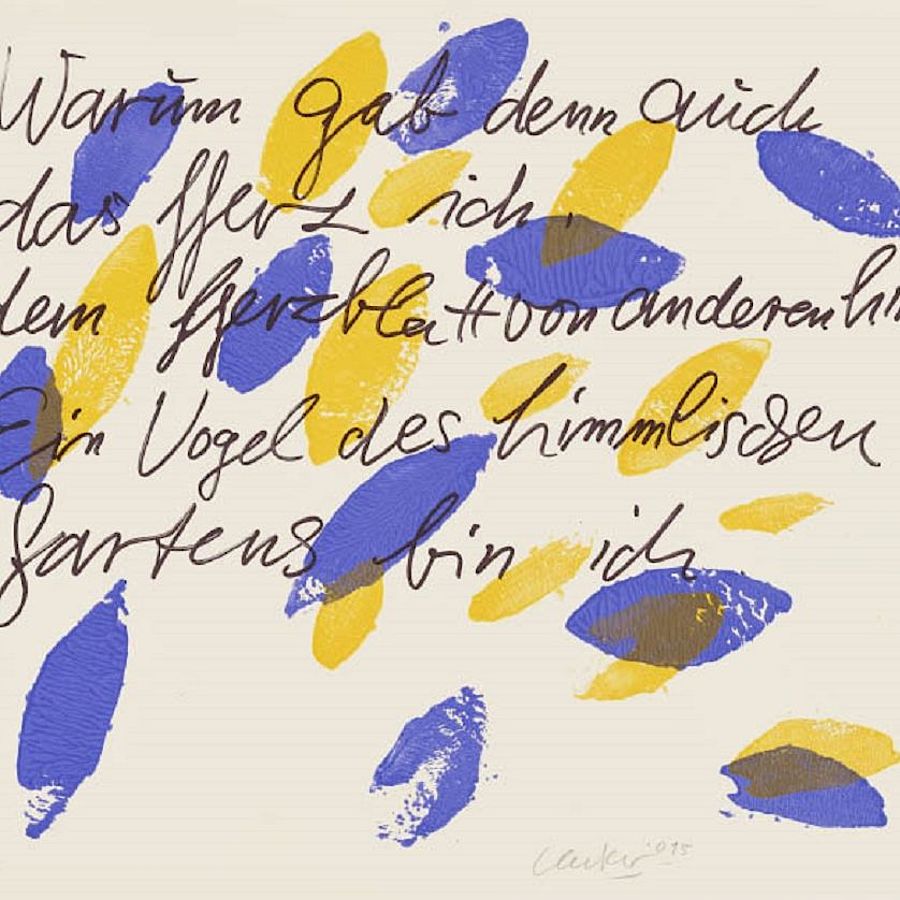 Warum gab denn auch
das Herz ich,
dem Herzblatt von anderen hin
Ein Vogel des himmlischen
Gartens bin ich